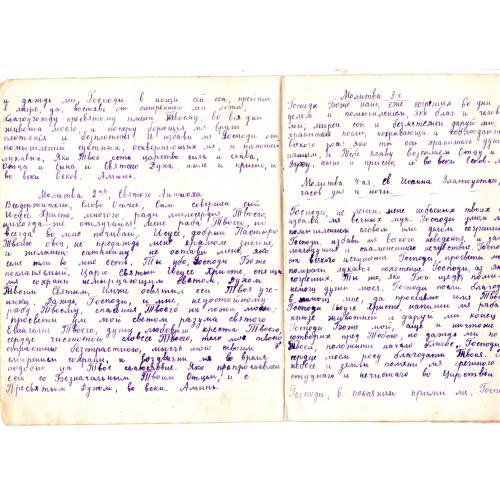 и даждь ми, Господи в нощи сей сон, прейти
в мире, да, воставъ от смиреннаго ми ложа,
благоугожду пресвятому имени Твоему, во вся дни
живота моего, и поперу борющия мя враги
плотския и безплотныя. И избави мя Господи от
помышлений суетных, оскверняющих мя, и похотей
лукавых. Яко Твое есть царство сила и слава,
Отца и Сына и Святаго Духа, ныне и присно, и
во веки веков. Аминь.
Молитва 2ая, святого Антиоха
Вседержителю, Слово Отчее, Сам совершен сый
Иисусе Христе, многаго ради милосердия Твоего,
никогда же отлучайся мене раба Твоего, но
всегда во мне почивай. Иисусе, добрый Пастырю
Твоих овец, не предаждь мене крамоле змиине,
и желанию сатанину не остави мене, яко
семя тли во мне есть. Ты убо, Господи Боже
покланяемый, Царю Святый Иисусе Христе, спяща
мя сохрани немерцающим светом, Духом
Твоим Святым, Имже освятил еси Твоя уче-
ники. Даждь, Господи, и мне, недостойному
рабу Твоему, спасение Твое на ложи моем:
просвети ум мой светом разума святаго
Евангелия Твоего, душу любовию креста Твоего,
сердце чистотою словесе Твоего, тело мое Твоею
страстию безстрастною, мысль мою твоим
смирением сохрани, и воздвигни мя во время
подобно на Твое славословие. Яко препрославлен
еси со Безначальным Твоим Отцем, и с
Пресвятым Духом, во веки. Аминь.
Молитва 3-я.
Господи Боже наш, еже согреших во дни
словом и помышлением, яко благ и человек
ми, мирен сон и безмятежен даруй ми,
хранителя посли, покрывающа и соблюдающа
всякого зла: яко ты еси хранитель душам
нашим, и Тебе славу возсылаем Отцу и
Духу, ныне и присно, и во веки веков.
Молитва 4-ая, св. Иоанна Златоустаго,
часов дня и ночи.
Господи, не лиши мене небесных твоих
избави мя вечных мук. Господи умом
помышлением словом или делом согреших
Господи, избави мя всякого неведения, и заб
малодушия и окамененного нечувствия. Господи
мя всякого искушения. Господи, просвети мое
помрачи лукавое похотение. Господи, аз яко
согреших. Ты же, яко Бог щедр, помилуй
немощь души моея. Господи посли благодать
в помощь мне, да прославлю имя Твое
Господи Иисусе Христе, напиши мя раба
книзе животней и даруй ми конец
Господи Боже мой, аще и ничтоже
сотворих пред Тобою, но даждь ми по
Твоей, положити начало благое. Господи
сердце моем росу благодати Твоея.
небесе и земли помяни мя грешного
студнаго и нечистаго во Царствии
Господи, в покаянии приими мя. Госп